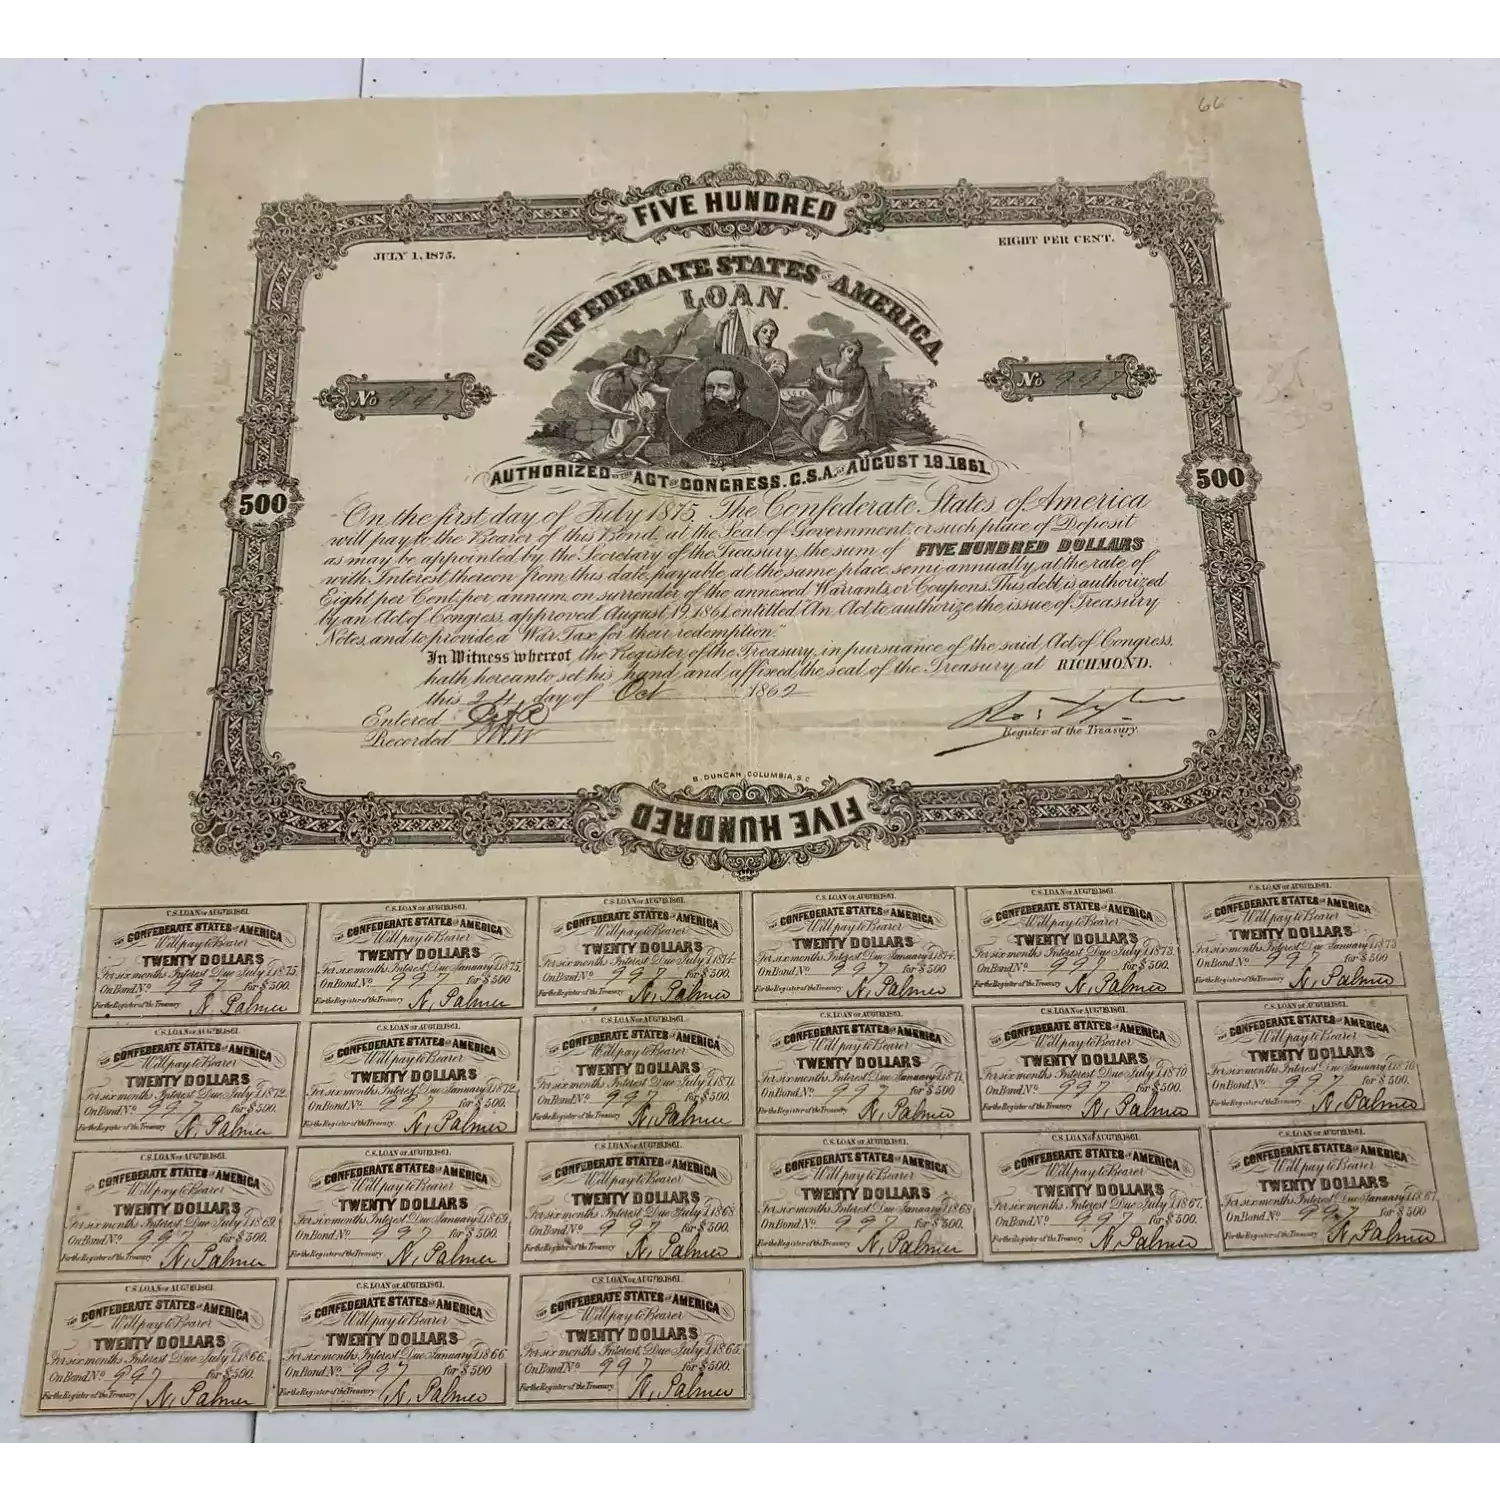 66
FIVE HUNDRED
JULY 1, 1875. EIGHT PER CENT.
CONFEDERATE STATES OF AMERICA
LOAN.
No 997 No 997
AUTHORIZED BY THE ACT OF CONGRESS, C.S.A. OF AUGUST 19. 1861.
500 500
On the first day of July 1875. The Confederate States of America
will pay to the Bearer of this Bond, at the Seat of Government, or such place of Deposit
as may be appointed by the Secretary of the Treasury, the sum of FIVE HUNDRED DOLLARS
with Interest thereon from this date, payable at the same place semi-annually, at the rate of
Eight per Cent, per annum, on surrender of the annexed Warrants, or Coupons. This debt is authorized
by an Act of Congress, approved August 19, 1861, entitled "An Act to authorize the issue of Treasury
Notes, and to provide a War Tax for their redemption."
In Witness whereof the Register of the Treasury, in pursuance of the said Act of Congress,
hath hereunto set his hand and affixed the seal of the Treasury at RICHMOND.
this 24 day of Oct 1862
Entered
Recorded
Ro: Tyler
Register of the Treasury.
B. DUNCAN, COLUMBIA, S.C
FIVE HUNDRED
C.S. LOAN OF AUG! 19, 1861.
THE CONFEDERATE STATES OF AMERICA
Will pay to Bearer
TWENTY DOLLARS
For six months Interest Due July 1, 1875.
On Bond No. 997 for $500.
For the Register of the Treasury N. Palmer
C.S. LOAN OF AUG! 19, 1861.
THE CONFEDERATE STATES OF AMERICA
Will pay to Bearer
TWENTY DOLLARS
For six months Interest Due January 1, 1875.
On Bond No. 997 for $500
For the Register of the Treasury N. Palmer
C.S. LOAN OF AUG! 19, 1861.
THE CONFEDERATE STATES OF AMERICA
Will pay to Bearer
TWENTY DOLLARS
For six months Interest Due July 1, 1874.
On Bond No. 997 for $500.
For the Register of the Treasury N. Palmer
C.S. LOAN OF AUG! 19, 1861.
THE CONFEDERATE STATES OF AMERICA
Will pay to Bearer
TWENTY DOLLARS
For six months Interest Due January 1, 1874.
On Bond No. 997 for $500.
For the Register of the Treasury N. Palmer
C.S. LOAN OF AUG! 19, 1861.
THE CONFEDERATE STATES OF AMERICA
Will pay to Bearer
TWENTY DOLLARS
For six months Interest Due July 1, 1873.
On Bond No. 997 for $500.
For the Register of the Treasury N. Palmer
C.S. LOAN OF AUG! 19, 1861.
THE CONFEDERATE STATES OF AMERICA
Will pay to Bearer
TWENTY DOLLARS
For six months Interest Due January 1, 1873
On Bond No. 997 for $500.
For the Register of the Treasury N. Palmer
C.S. LOAN OF AUG! 19, 1861.
THE CONFEDERATE STATES OF AMERICA
Will pay to Bearer
TWENTY DOLLARS
For six months Interest Due July 1, 1872.
On Bond No. 997 for $500.
For the Register of the Treasury N. Palmer
C.S. LOAN OF AUG! 19, 1861.
THE CONFEDERATE STATES OF AMERICA
Will pay to Bearer
TWENTY DOLLARS
For six months Interest Due January 1, 1872.
On Bond No. 997 for $500.
For the Register of the Treasury N. Palmer
C.S. LOAN OF AUG! 19, 1861.
THE CONFEDERATE STATES OF AMERICA
Will pay to Bearer
TWENTY DOLLARS
For six months Interest Due July 1, 1871.
On Bond No. 997 for $500.
For the Register of the Treasury N. Palmer
C.S. LOAN OF AUG! 19, 1861.
THE CONFEDERATE STATES OF AMERICA
Will pay to Bearer
TWENTY DOLLARS
For six months Interest Due January 1, 1871.
On Bond No. 997 for $500.
For the Register of the Treasury N. Palmer
C.S. LOAN OF AUG! 19, 1861.
THE CONFEDERATE STATES OF AMERICA
Will pay to Bearer
TWENTY DOLLARS
For six months Interest Due July 1, 1870
On Bond No. 997 for $500.
For the Register of the Treasury N. Palmer
C.S. LOAN OF AUG! 19, 1861.
THE CONFEDERATE STATES OF AMERICA
Will pay to Bearer
TWENTY DOLLARS
For six months Interest Due January 1, 1870.
On Bond No. 997 for $500.
For the Register of the Treasury N. Palmer
C.S. LOAN OF AUG! 19, 1861.
THE CONFEDERATE STATES OF AMERICA
Will pay to Bearer
TWENTY DOLLARS
For six months Interest Due July 1, 1869.
On Bond No. 997 for $500.
For the Register of the Treasury N. Palmer
C.S. LOAN OF AUG! 19, 1861.
THE CONFEDERATE STATES OF AMERICA
Will pay to Bearer
TWENTY DOLLARS
For six months Interest Due January 1, 1869.
On Bond No. 997 for $500.
For the Register of the Treasury N. Palmer
C.S. LOAN OF AUG! 19, 1861.
THE CONFEDERATE STATES OF AMERICA
Will pay to Bearer
TWENTY DOLLARS
For six months Interest Due July 1, 1868
On Bond No. 997 for $500.
For the Register of the Treasury N. Palmer
C.S. LOAN OF AUG! 19, 1861.
THE CONFEDERATE STATES OF AMERICA
Will pay to Bearer
TWENTY DOLLARS
For six months Interest Due January 1, 1868
On Bond No. 997 for $500.
For the Register of the Treasury N. Palmer
C.S. LOAN OF AUG! 19, 1861.
THE CONFEDERATE STATES OF AMERICA
Will pay to Bearer
TWENTY DOLLARS
For six months Interest Due July 1, 1867.
On Bond No. 997 for $500.
For the Register of the Treasury N. Palmer
C.S. LOAN OF AUG! 19, 1861.
THE CONFEDERATE STATES OF AMERICA
Will pay to Bearer
TWENTY DOLLARS
For six months Interest Due January 1, 1867
On Bond No. 997 for $500
For the Register of the Treasury N. Palmer
C.S. LOAN OF AUG! 19, 1861.
THE CONFEDERATE STATES OF AMERICA
Will pay to Bearer
TWENTY DOLLARS
For six months Interest Due July 1, 1866.
On Bond No. 997 for $500.
For the Register of the Treasury N. Palmer
C.S. LOAN OF AUG! 19, 1861.
THE CONFEDERATE STATES OF AMERICA
Will pay to Bearer
TWENTY DOLLARS
For six months Interest Due January 1, 1866
On Bond No. 997 for $500
For the Register of the Treasury N. Palmer
C.S. LOAN OF AUG! 19, 1861.
THE CONFEDERATE STATES OF AMERICA
Will pay to Bearer
TWENTY DOLLARS
For six months Interest Due July 1, 1865.
On Bond No. 997 for $500.
For the Register of the Treasury N. Palmer